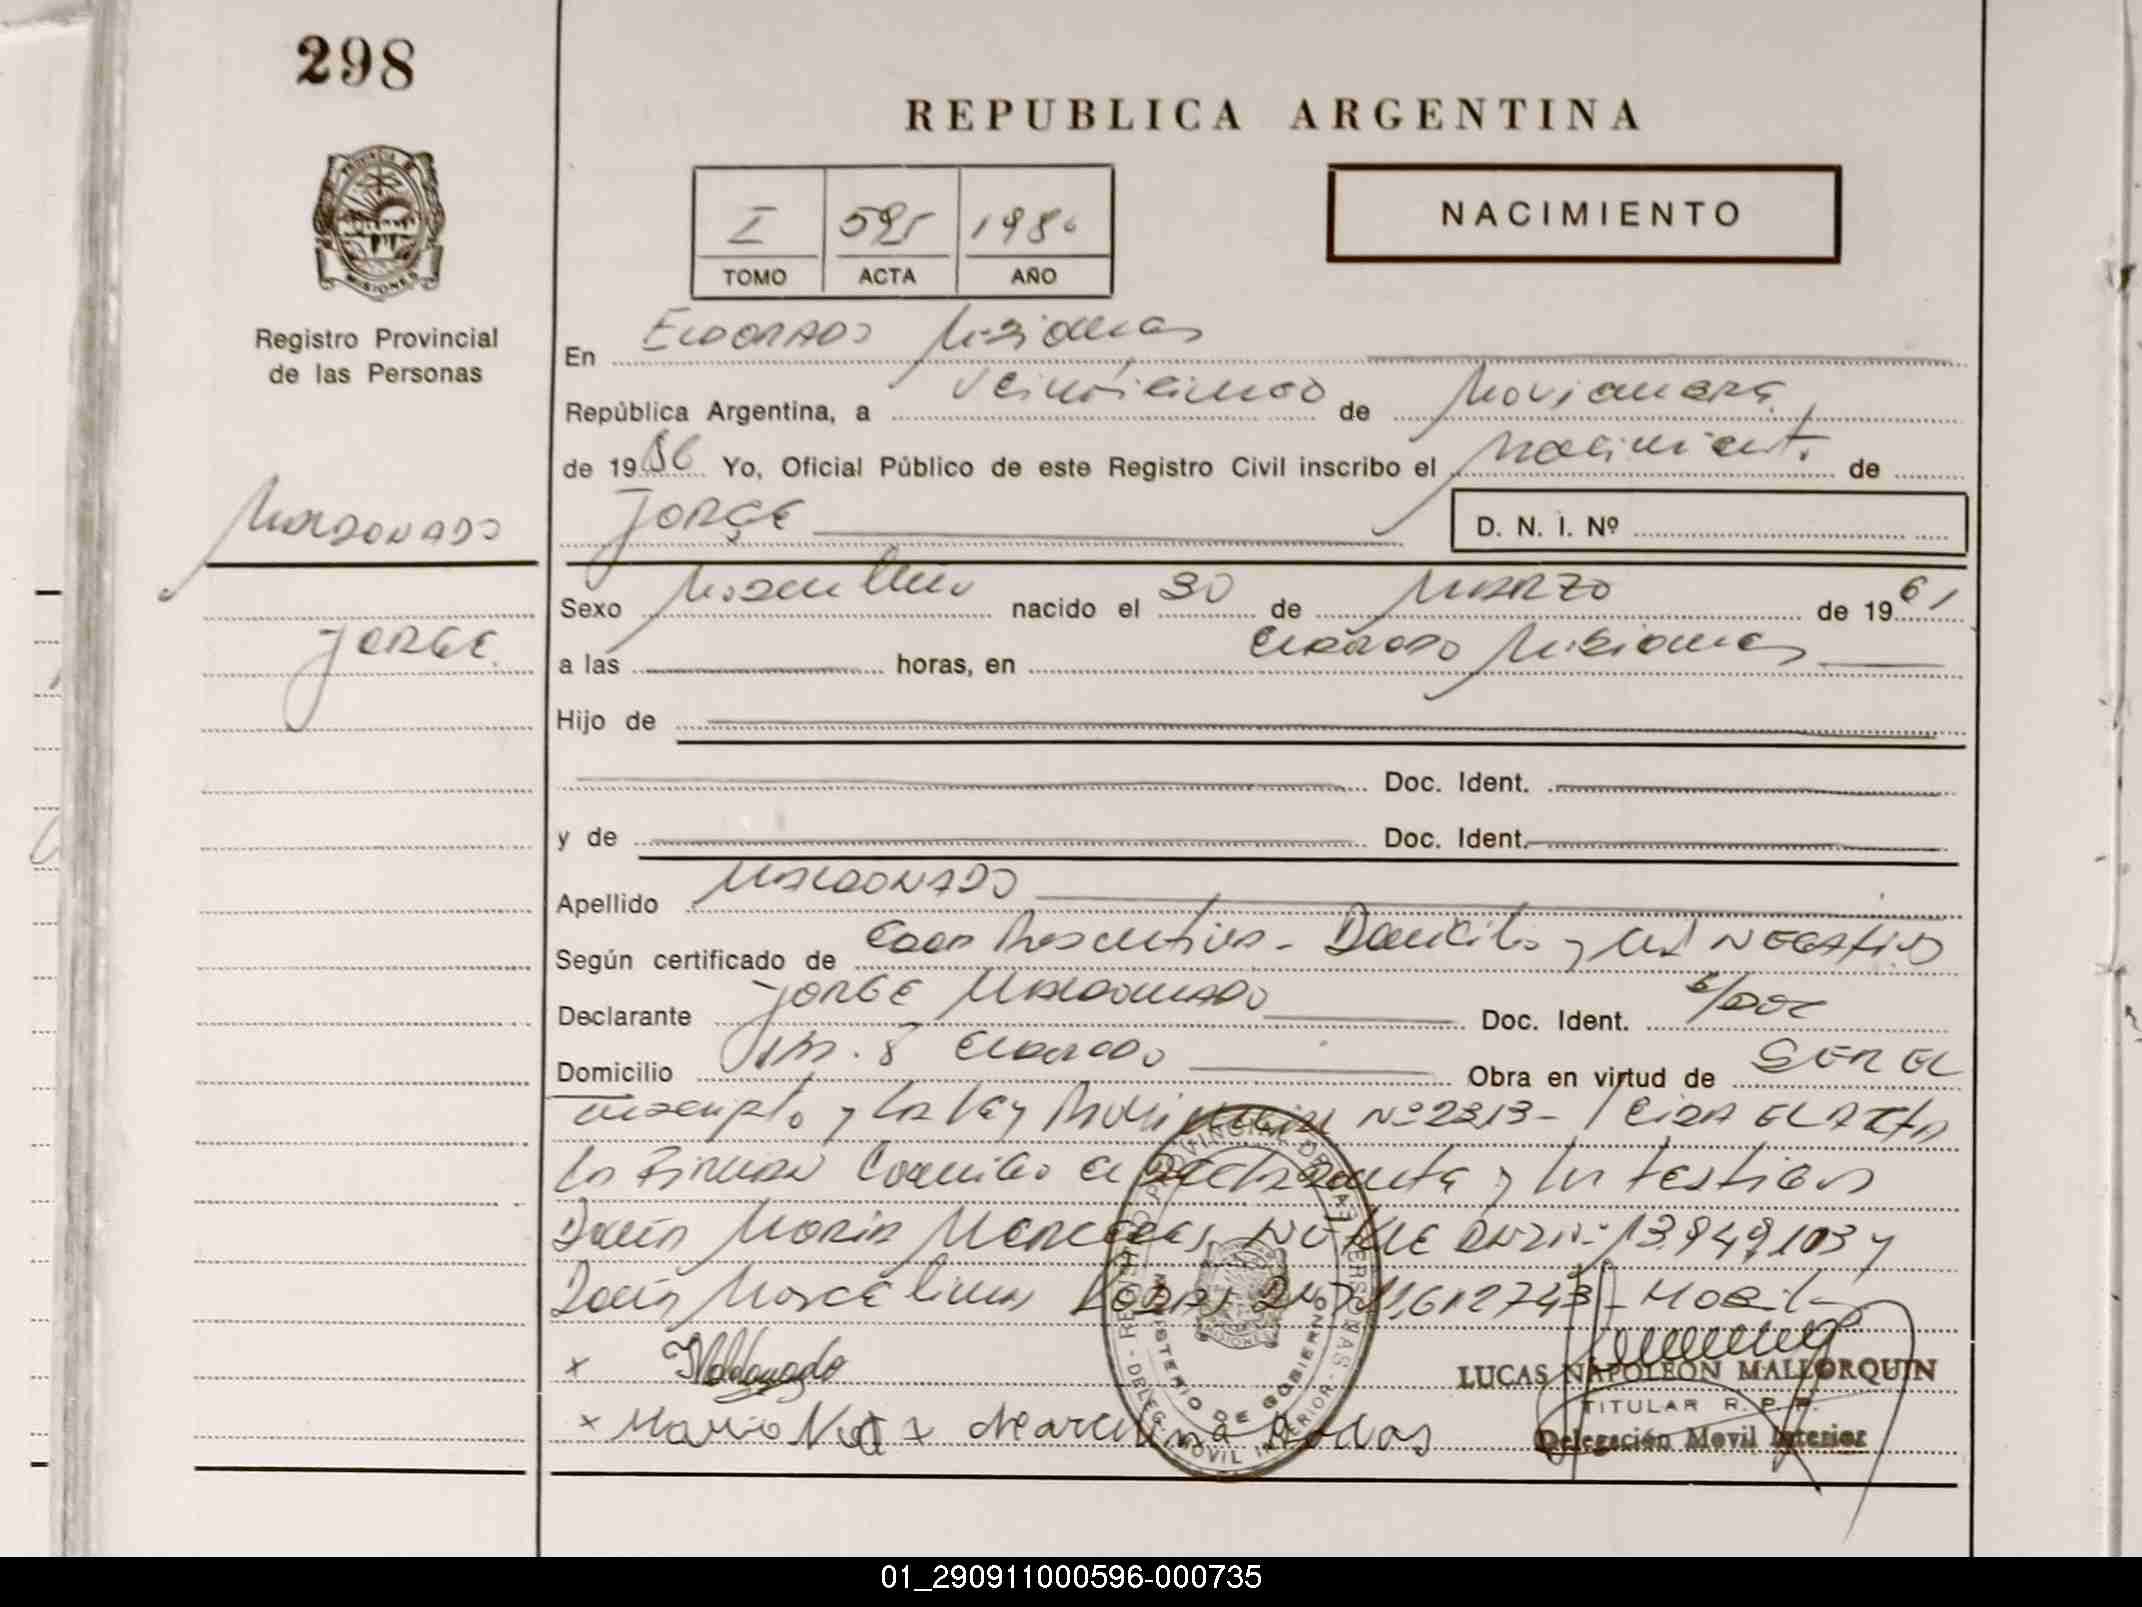 298
REPUBLICA ARGENTINA
NACIMIENTO
I 595 1986
TOMO ACTA AÑO
PROVINCIA DE MISIONES
Registro Provincial
de las Personas
En ELDORADO Misiones
República Argentina, a veinticinco de Noviembre
de 1986 Yo, Oficial Público de este Registro Civil inscribo el Nacimiento de
JORGE
D. N. I. Nº
MALDONADO
JORGE
Sexo Masculino nacido el 30 de MARZO de 1961
a las horas, en Eldorado Misiones
Hijo de
Doc. Ident.
y de Doc. Ident.
Apellido MALDONADO
Según certificado de Edad Presuntiva - Domicilio y NEGATIVO
Declarante JORGE MALDONADO Doc. Ident. s/doc
Domicilio Km. 8 Eldorado Obra en virtud de SER EL
inscripto y la Ley Provincial Nº 2313 - Leida EL ACTA
la Firman Conmigo el Declarante y los testigos
Doña Maria Mercedes DNI Nº 13.949.103 y
Doña Marcelina Rodas 11.612743
x Maldonado
x Maria x Marcelina Rodas
LUCAS NAPOLEON MALLORQUIN
TITULAR R. P. P.
Delegación Movil Interior
REGISTRO PROVINCIAL DE LAS PERSONAS - DELEG. MOVIL INTERIOR -
MINISTERIO DE GOBIERNO
01_290911000596-000735